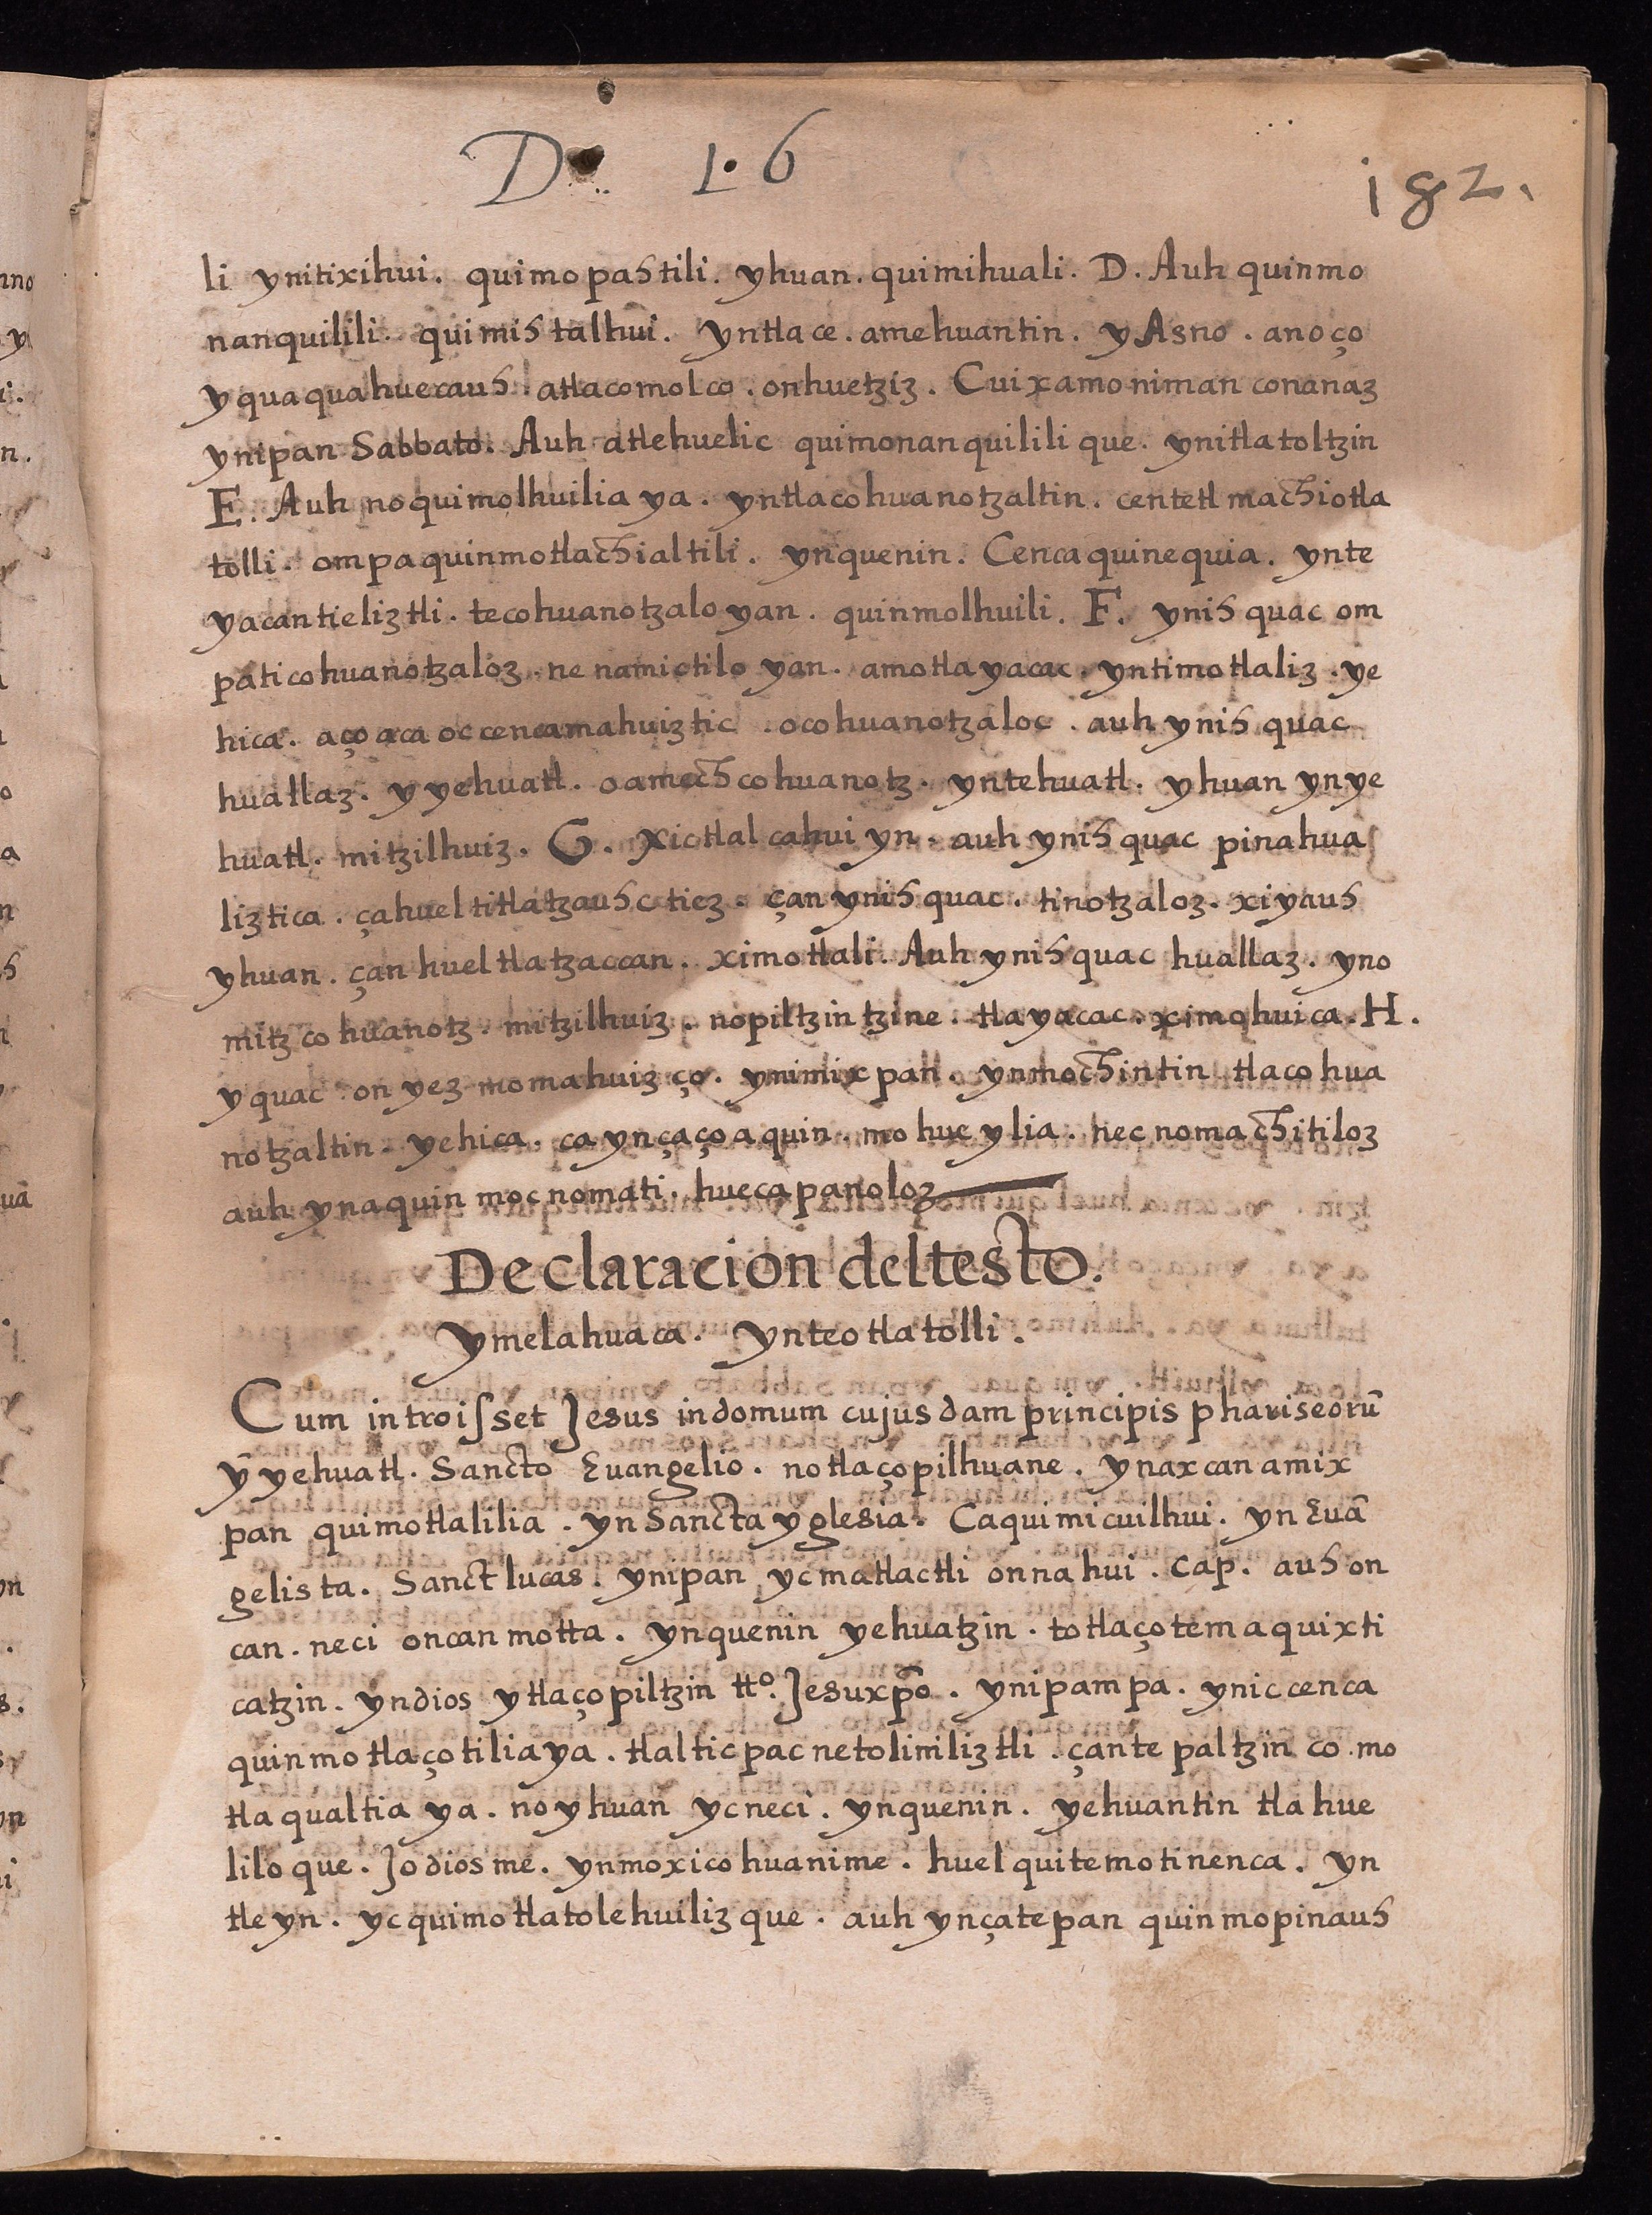 D. 1.6
182.
li ynitixihui. quimopashtili. yhuan. quimihuali. D. Auh quinmo
nanquilili. quimishtalhui. yntlace. amehuantin. y Asno. anoço
yquaquahuecauh. atlacomolco. onhuetziz. Cuix amo niman conanaz
ynipan Sabbato. Auh atlehuelic quimonanquilili que. ynitlatoltzin
E. Auh noquimolhuilia ya. yntlacohuanotzaltin. centetl machiotla
tolli. ompaquinmotlachialtili. ynquenin. Cencaquinequia. ynte
yacantieliztli. tecohuanotzaloyan. quinmolhuili. F. ynihquac om
paticohuanotzaloz. nenamictiloyan. amotlayacac. yntimotlaliz. ye
hica. açoaca occencamahuiztic. ocohuanotzaloc. auh ynihquac
huallaz. y yehuatl. oamechcohuanotz. yntehuatl. yhuan ynye
huatl. mitzilhuiz. G. Xictlalcahui yn. auh ynihquac pinahua
liztica. çahueltitlatzauhctiez. çan ynihquac. tinotzaloz. xiyauh
yhuan. çan huel tlatzaccan. ximotlali. Auh ynihquac huallaz. yno
mitzcohuanotz. mitzilhuiz. nopiltzintzine. tlayacac. ximohuica. H.
yquac on yez momahuizço. ynimixpan. ynmochintin tlacohua
notzaltin. yehica. ca ynçaçoaquin. mohueylia. necnomachitiloz
auh ynaquin mocnomati. huecapanoloz
Declaracion deltesto.
Ymelahuaca. Ynteotlatolli.
Cum introisset Jesus indomum cujusdam principis phariseorũ
ỹ yehuatl. Sancto Euangelio. notlaçopilhuane. ynaxcan amix
pan quimotlalilia. yn Sancta yglesia. Caquimicuilhui. yn Euã
gelista. Sanct lucas. ynipan ycmatlactli onnahui. Cap. auh on
can. neci oncan motta. ynquenin yehuatzin. totlaçotemaquixti
catzin. yndios ytlaçopiltzin tto. Jesuxp̃o. ynipampa. yniccenca
quinmotlaçotiliaya. tlalticpac netoliniliztli. çantepaltzinco. mo
tlaqualtia ya. no yhuan ycneci. ynquenin. yehuantin tlahue
liloque. Jodiosme. ynmoxicohuanime. huel quitemotinenca. yn
tleyn. yc quimotlatolehuilizque. auh ynçatepan quinmopinauh